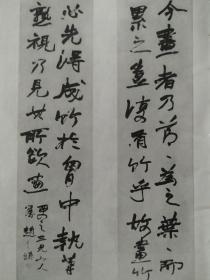 今畫者乃節〻為之葉〻而
累之豈復有竹乎故畫竹
必先得成竹於胷中執筆
熟視乃見其所欲畫